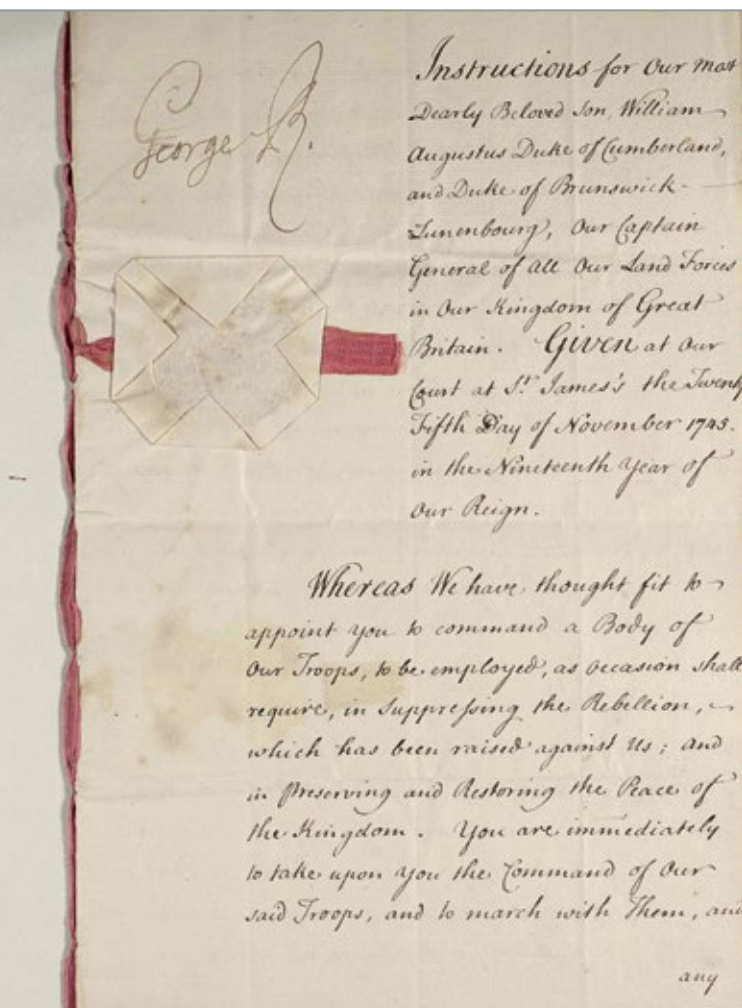 George R.
Instructions for Our Most
Dearly Beloved Son, William
Augustus Duke of Cumberland,
and Duke of Brunswick-
Lunenbourg, Our Captain
General of all Our Land Forces
in Our Kingdom of Great
Britain. Given at Our
Court at St. James's the Twenty
Fifth Day of November 1745.
in the Nineteenth Year of
Our Reign.
Whereas We have thought fit to
appoint you to command a Body of
Our Troops, to be employed, as occasion shall
require, in Suppressing the Rebellion,
which has been raised against Us; and
in Preserving and Restoring the Peace of
the Kingdom. You are immediately
to take upon you the Command of Our
said Troops, and to march with Them, and
any